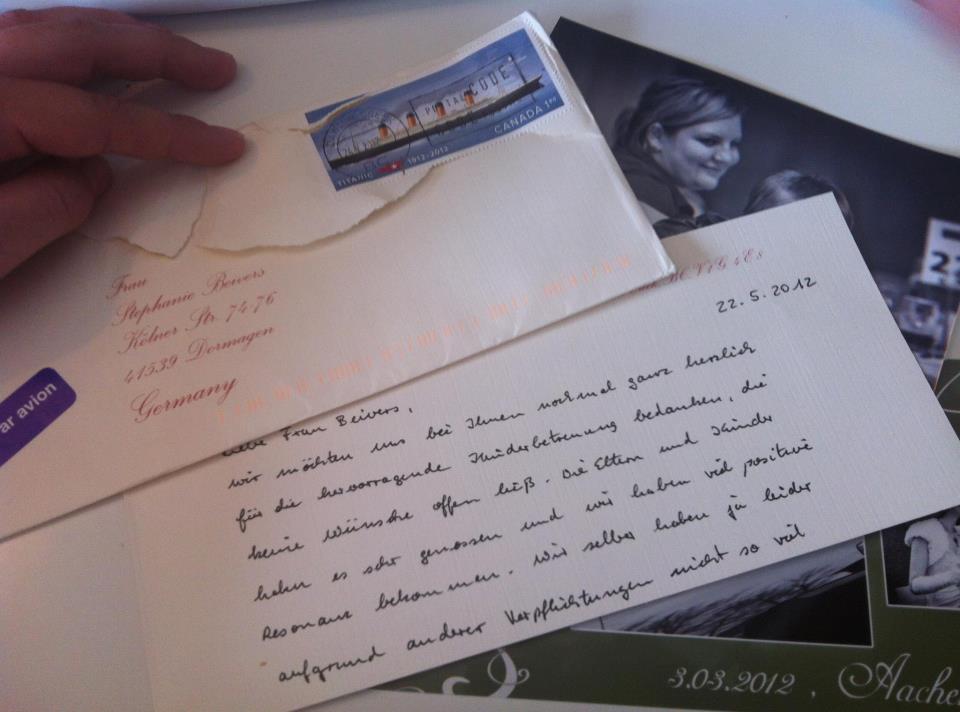 POSTAL CODE
CANADA 1.00
TITANIC 1912-2012
Frau
Stephanie Beivers
Kölner Str. 74-76
41539 Dormagen
Germany
ar avion
BC V4G 4E8
22.5.2012
Liebe Frau Beivers,
wir möchten uns bei Ihnen nochmal ganz herzlich
für die hervorragende Kinderbetreuung bedanken, die
keine Wünsche offen ließ. Die Eltern und Kinder
haben es sehr genossen und wir haben viel positive
Resonanz bekommen. Wir selber haben ja leider
aufgrund anderer Verpflichtungen nicht so viel
3.03.2012, Aache